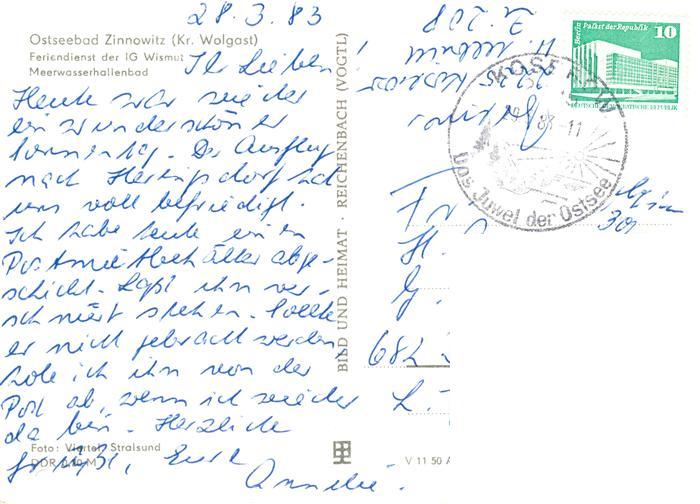 28.3.83
Ostseebad Zinnowitz (Kr. Wolgast)
Feriendienst der IG Wismut
Meerwasserhallenbad
Ihr Lieben!
Heute war wieder
ein wunderschöner
Sonnentag. Der Ausflug
nach Heringsdorf hat
uns voll befriedigt.
Ich habe heute einen
Postmietbehälter abge-
schickt. Laßt ihn ver-
schnürt stehen. Sollte
er nicht gebracht werden,
hole ich ihn von der
Post ab, wenn ich wieder
da bin. Herzliche
Grüße, Eure
Foto: Viertel, Stralsund
DDR
BILD UND HEIMAT · REICHENBACH (VOGTL)
V 11 50 A
Berlin Palast der Republik 10
DEUTSCHE DEMOKRATISCHE REPUBLIK
KOSEROW
83-11
Das Juwel der Ostsee
Z. 208
Fr
682